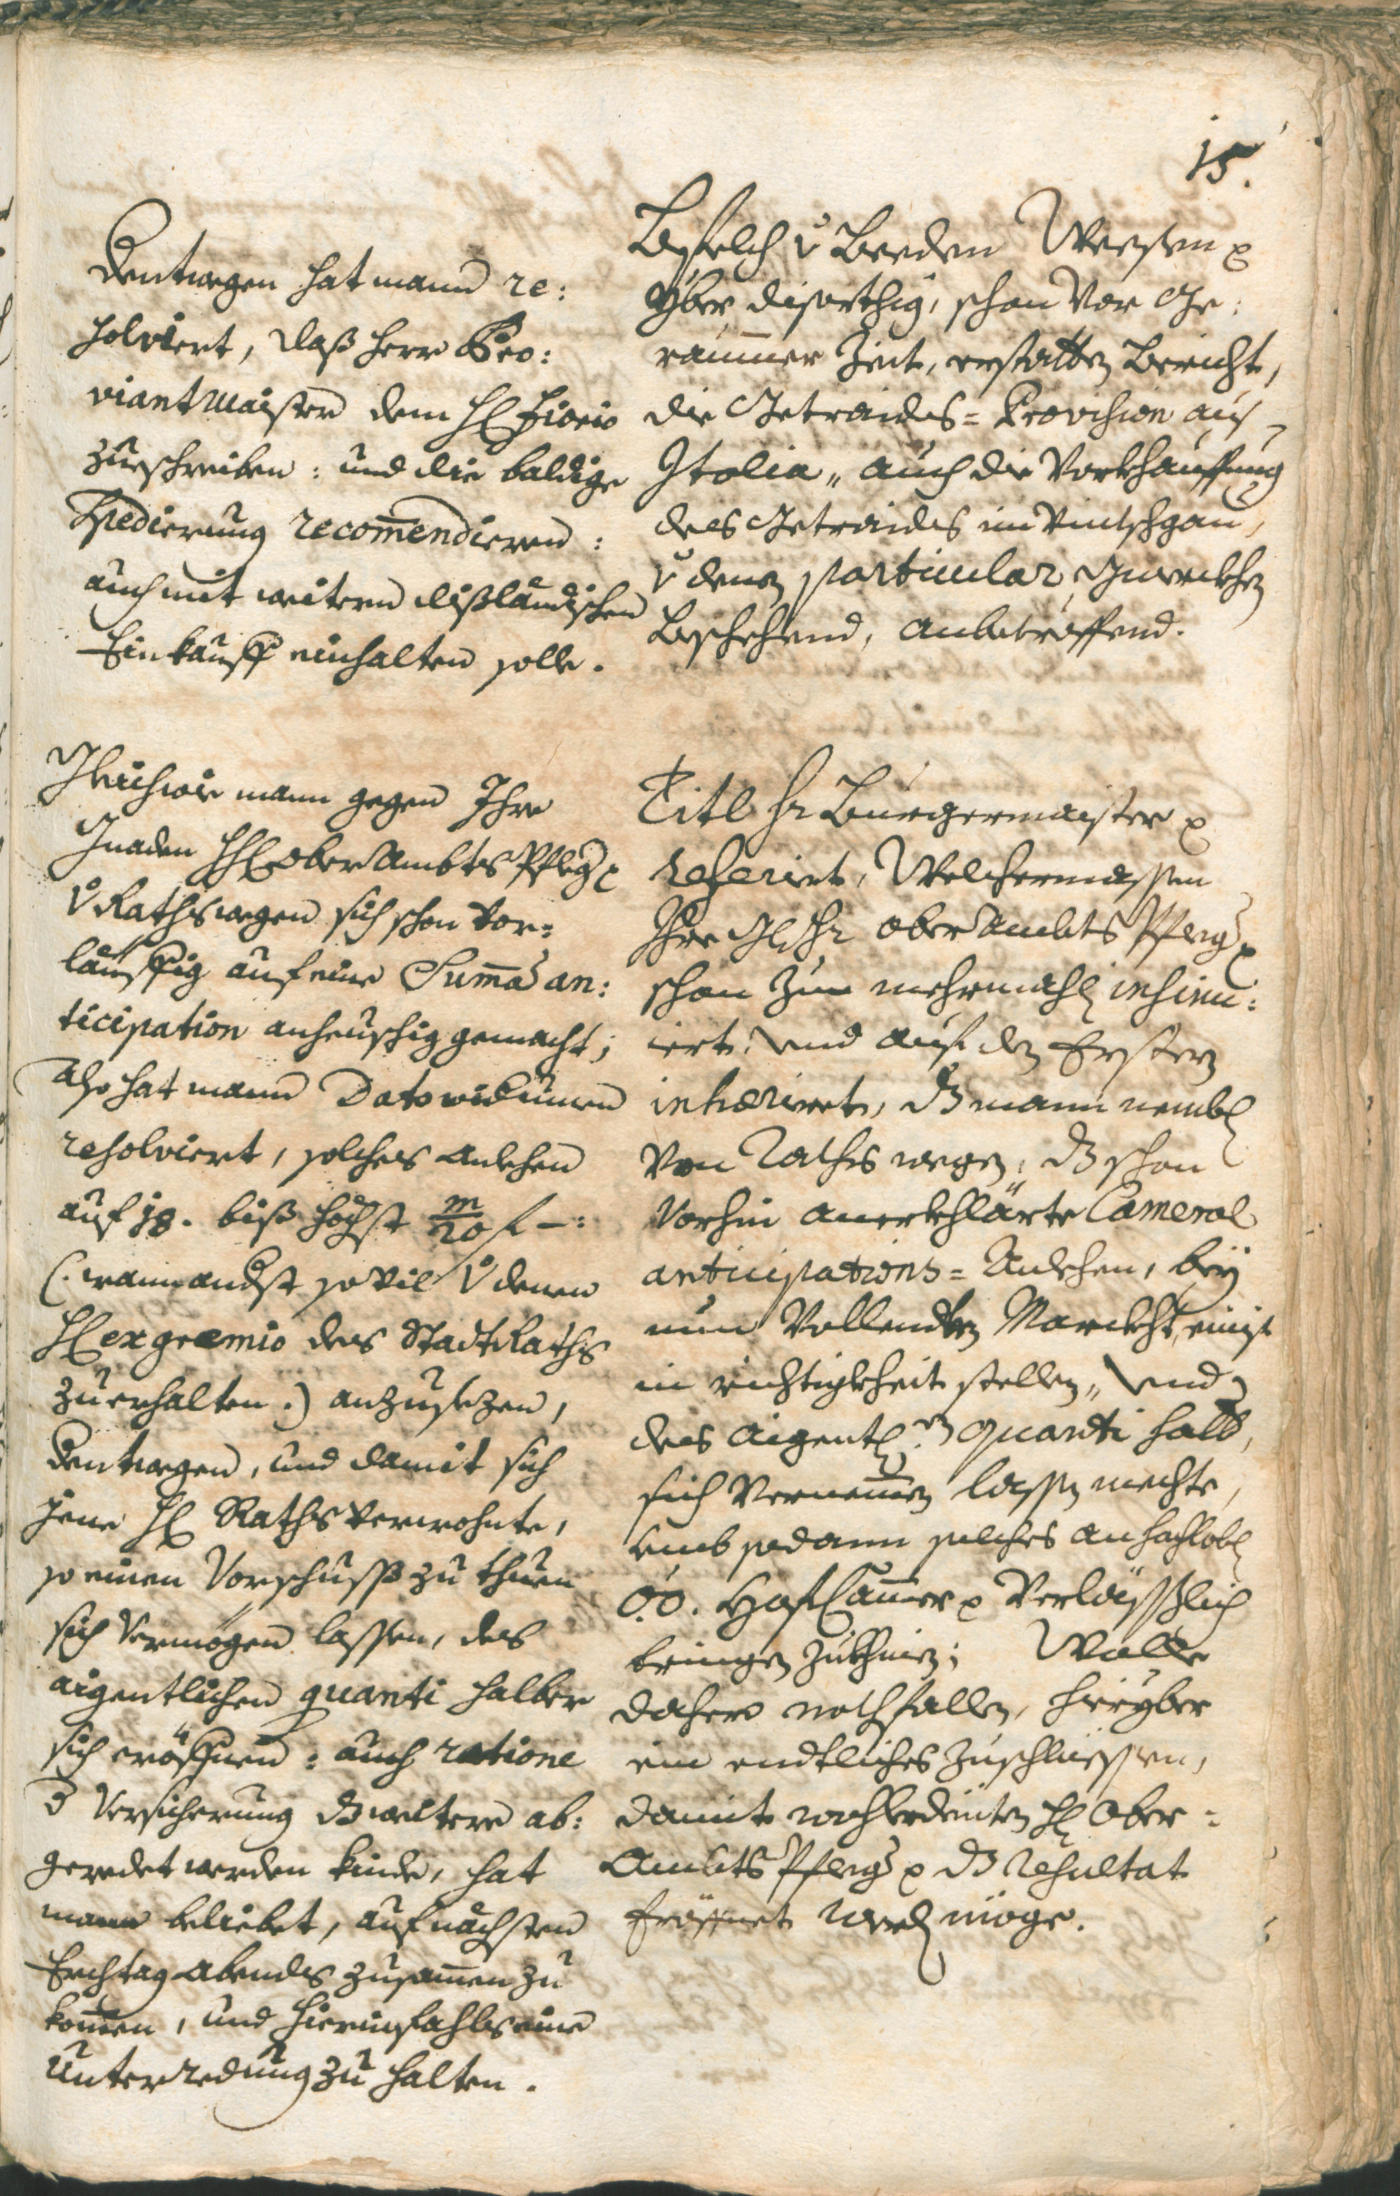 15.
Dentwegen hat mann re:
solviert, daß Herr Pro:
viantmaister dem H: Fiorio
zueschreiben: und die baldige
Spedierung recom̄endieren:
auch mit weitern dißländischen
Einkauff einhalten solle.
Gleichwie mann gegen Ihro
Gnaden HH: ober Ambts Pfleg
v Raths wegen sich schon vor:
läuffig auf eine Sum̄a an:
ticipation anheuschig gemacht;
Also hat mann Dato widerumen
resolviert, solches Anlehen
auf 18. biß höchst m/20 f –:
(: wann andst so vil v denen
H: ex gremio des Stadt Raths
zu erhalten :) anzusezen,
Dentwegen, und damit sich
jene H: Raths Verwohnte,
so einen Vorschuss zu thuen
sich vermögen lassen, des
aigentlichen quanti halber
sich eröffnen: auch ratione
d Versicherung dz weitere ab:
geredet werden kinde, hat
mann beliebet, auf nächsten
Erchtag Abends zusam̄en zu
kom̄en, und hieringfahls eine
Unterredung zu halten.
Befelch v Beeden Weesen
yber diserthig, schon vor Ge:
raumer Zeit, erstatten Bericht,
die Getraides = Provision aus
Itolia, auch die Vorkhauffung
des Getraides im Vintschgau,
v denen particular Gwerkhen
beschehend, anbetreffend.
Titl Hr Burgermaister
referiert, Welchermassen
Ihro Gl: Hr ober Ambts Pfleg
schon zum mehrmahl: insinu:
iert: und auf den Ersten
inhæriert, dz mann nembl:
von Raths wegen, dz schon
vorhin anerkhlärte Cameral
anticipations = Anlehen, bey
nun Vollendten Markht, einist
in richtigkheit stellen, und
des aigentl: quanti halb,
sich vernem̄en lassen mechte,
umb sodann solches an hochlobl:
O:Ö. Hof Cam̄er Verlässlich
bringen zu khinen; Wolle
dahero nothfallen, hieryber
ein endtliches zuschliessen,
damit wohlerdeiten H: Ober=
Ambts Pfleg dz resultat
Eröffnet werd: möge.